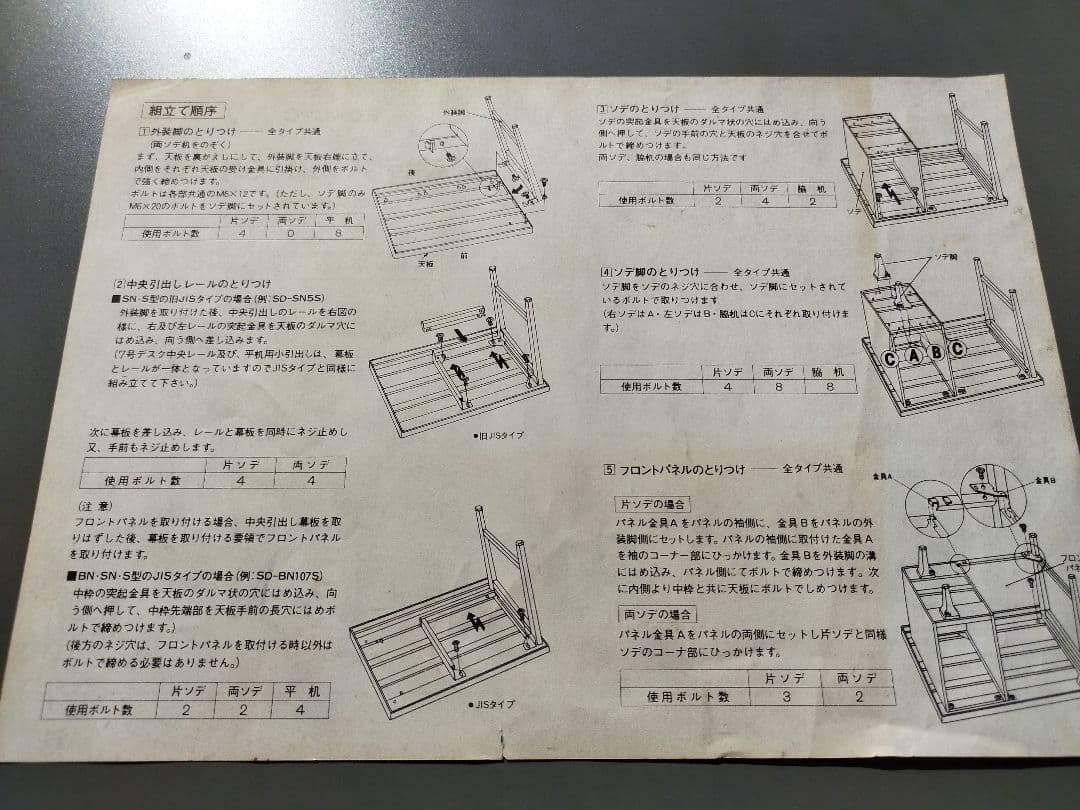 組立て順序
1 外装脚のとりつけ —— 全タイプ共通
(両ソデ机をのぞく)
まず、天板を裏がえしにして、外装脚を天板右端に立て、
内側をそれぞれ天板の受け金具に引掛け、外側をボルト
で強く締めつけます。
ボルトは各部共通のM6×12です。(ただし、ソデ脚のみ
M6×20のボルトをソデ脚にセットされています。)
片ソデ 両ソデ 平机
使用ボルト数 4 0 8
外装脚
後
天板
前
(2)中央引出しレールのとりつけ
■SN・S型の旧JISタイプの場合(例:SD-SN5S)
外装脚を取り付けた後、中央引出しのレールを右図の
様に、右及び左レールの突起金具を天板のダルマ穴に
はめ込み、向う側へ差し込みます。
(7号デスク中央レール及び、平机用小引出しは、幕板
とレールが一体となっていますのでJISタイプと同様に
組み立てて下さい。)
●旧JISタイプ
次に幕板を差し込み、レールと幕板を同時にネジ止めし
又、手前もネジ止めします。
片ソデ 両ソデ
使用ボルト数 4 4
(注意)
フロントパネルを取り付ける場合、中央引出し幕板を取
りはずした後、幕板を取り付ける要領でフロントパネル
を取り付けます。
■BN・SN・S型のJISタイプの場合(例:SD-BN107S)
中枠の突起金具を天板のダルマ状の穴にはめ込み、向
う側へ押して、中枠先端部を天板手前の長穴にはめボ
ルトで締めつけます。)
(後方のネジ穴は、フロントパネルを取付ける時以外は
ボルトで締める必要はありません。)
片ソデ 両ソデ 平机
使用ボルト数 2 2 4
●JISタイプ
3 ソデのとりつけ —— 全タイプ共通
ソデの突起金具を天板のダルマ状の穴にはめ込み、向う
側へ押して、ソデの手前の穴と天板のネジ穴を合せてボ
ルトで締めつけます。
両ソデ、脇机の場合も同じ方法です
片ソデ 両ソデ 脇机
使用ボルト数 2 4 2
ソデ
4 ソデ脚のとりつけ —— 全タイプ共通
ソデ脚をソデのネジ穴に合わせ、ソデ脚にセットされて
いるボルトで取りつけます
(右ソデはA・左ソデはB・脇机はCにそれぞれ取り付けま
す。)
片ソデ 両ソデ 脇机
使用ボルト数 4 8 8
ソデ脚
C A B C
5 フロントパネルのとりつけ —— 全タイプ共通
片ソデの場合
パネル金具Aをパネルの袖側に、金具Bをパネルの外
装脚側にセットします。パネルの袖側に取付けた金具A
を袖のコーナー部にひっかけます。金具Bを外装脚の溝
にはめ込み、パネル側にてボルトで締めつけます。次
に内側より中枠と共に天板にボルトでしめつけます。
両ソデの場合
パネル金具Aをパネルの両側にセットし片ソデと同様
ソデのコーナ部にひっかけます。
片ソデ 両ソデ
使用ボルト数 3 2
金具A
金具B
フロン
パネ